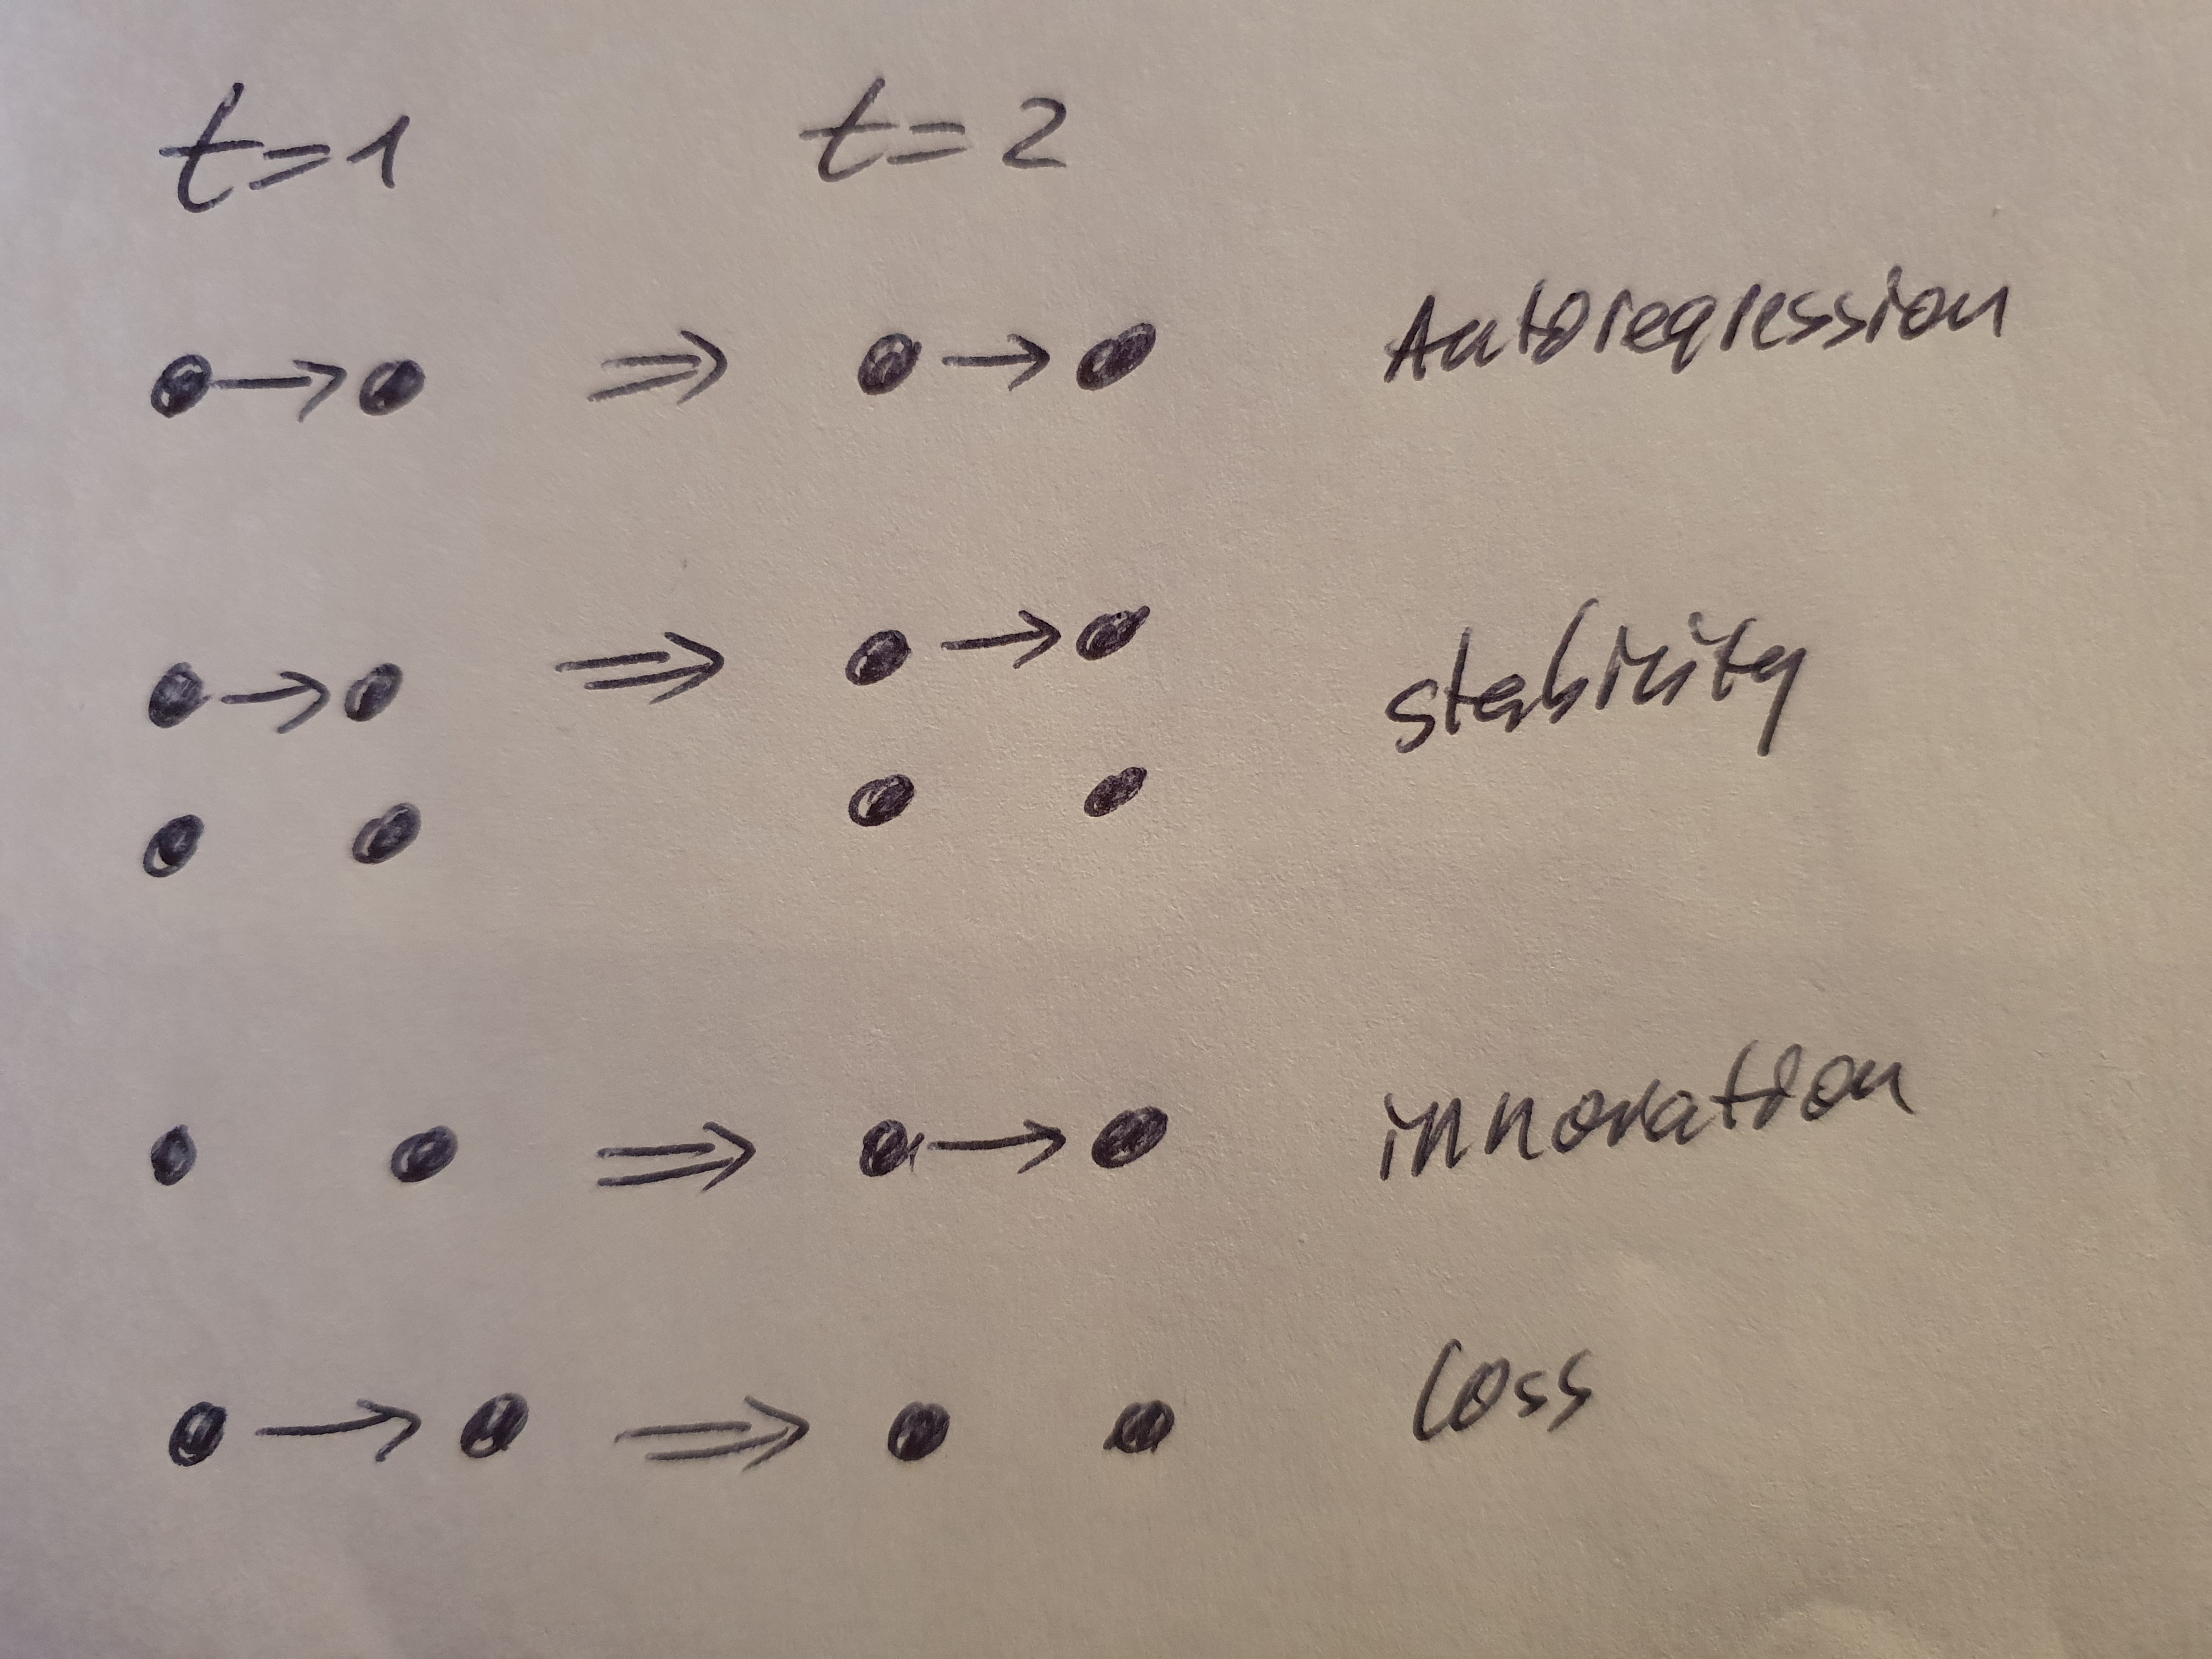 t=1 t=2
Autoregression
stability
innovation
loss